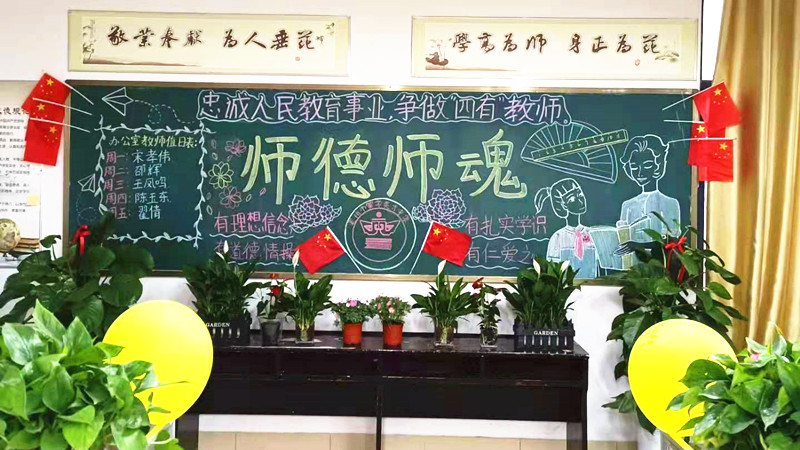 敬業奉獻 為人垂范
學高為師 身正為范
忠诚人民教育事业,争做"四有"教师。
师德师魂
办公室教师值日表:
周一:宋孝伟
周二:邵辉
周三:王凤鸣
周四:陈玉东
周五:翟倩
有理想信念
有道德情操
有扎实学识
有仁爱之
GARDEN
GARDEN